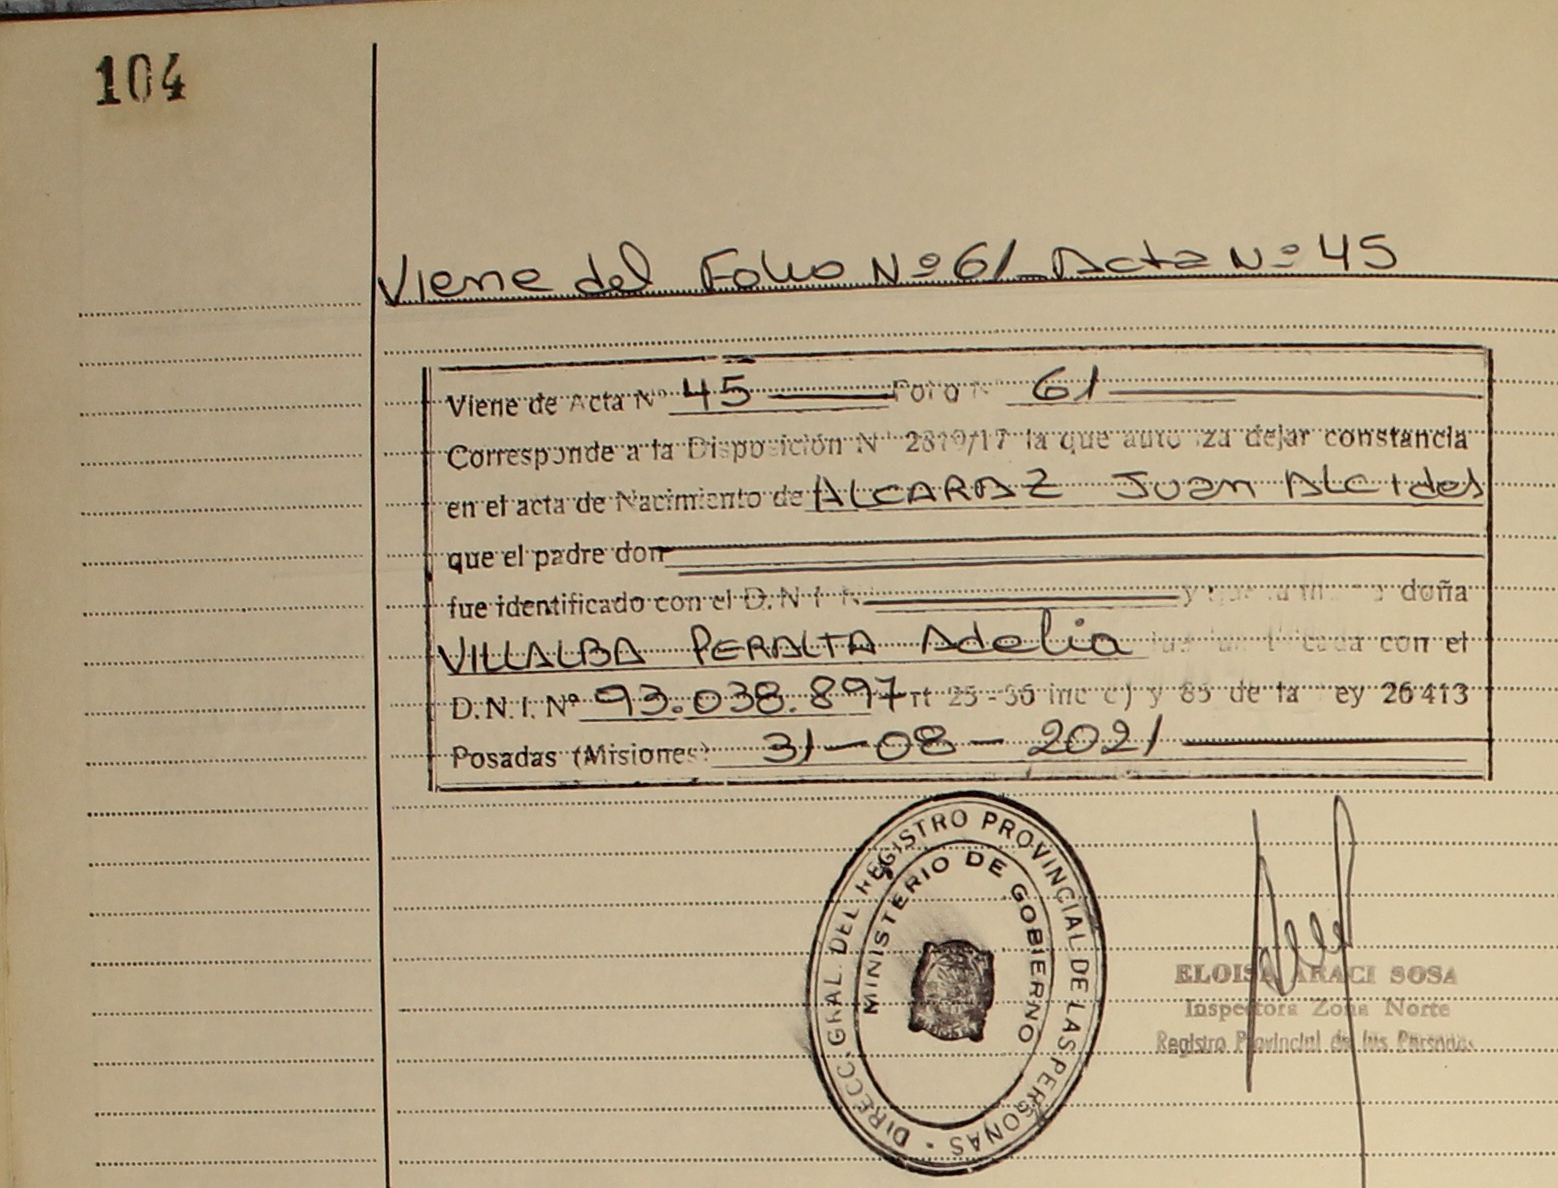 104
Viene del Folio Nº 61 Acta Nº 45
Viene de Acta Nº 45 Folio Nº 61
Corresponde a la Disposición Nº 2819/17 la que autoriza dejar constancia
en el acta de Nacimiento de ALCARAZ Juan Alcides
que el padre don
fue identificado con el D.N.I. N y que la doña
VILLALBA PERALTA Adelia con el
D.N.I. Nº 93.038.897 Art 25-36 inc c) y 85 de la Ley 26413
Posadas (Misiones) 31-08-2021
DIRECC. GRAL. DEL REGISTRO PROVINCIAL DE LAS PERSONAS
MINISTERIO DE GOBIERNO
ELOISA ARACI SOSA
Inspectora Zona Norte
Registro Provincial de las Personas